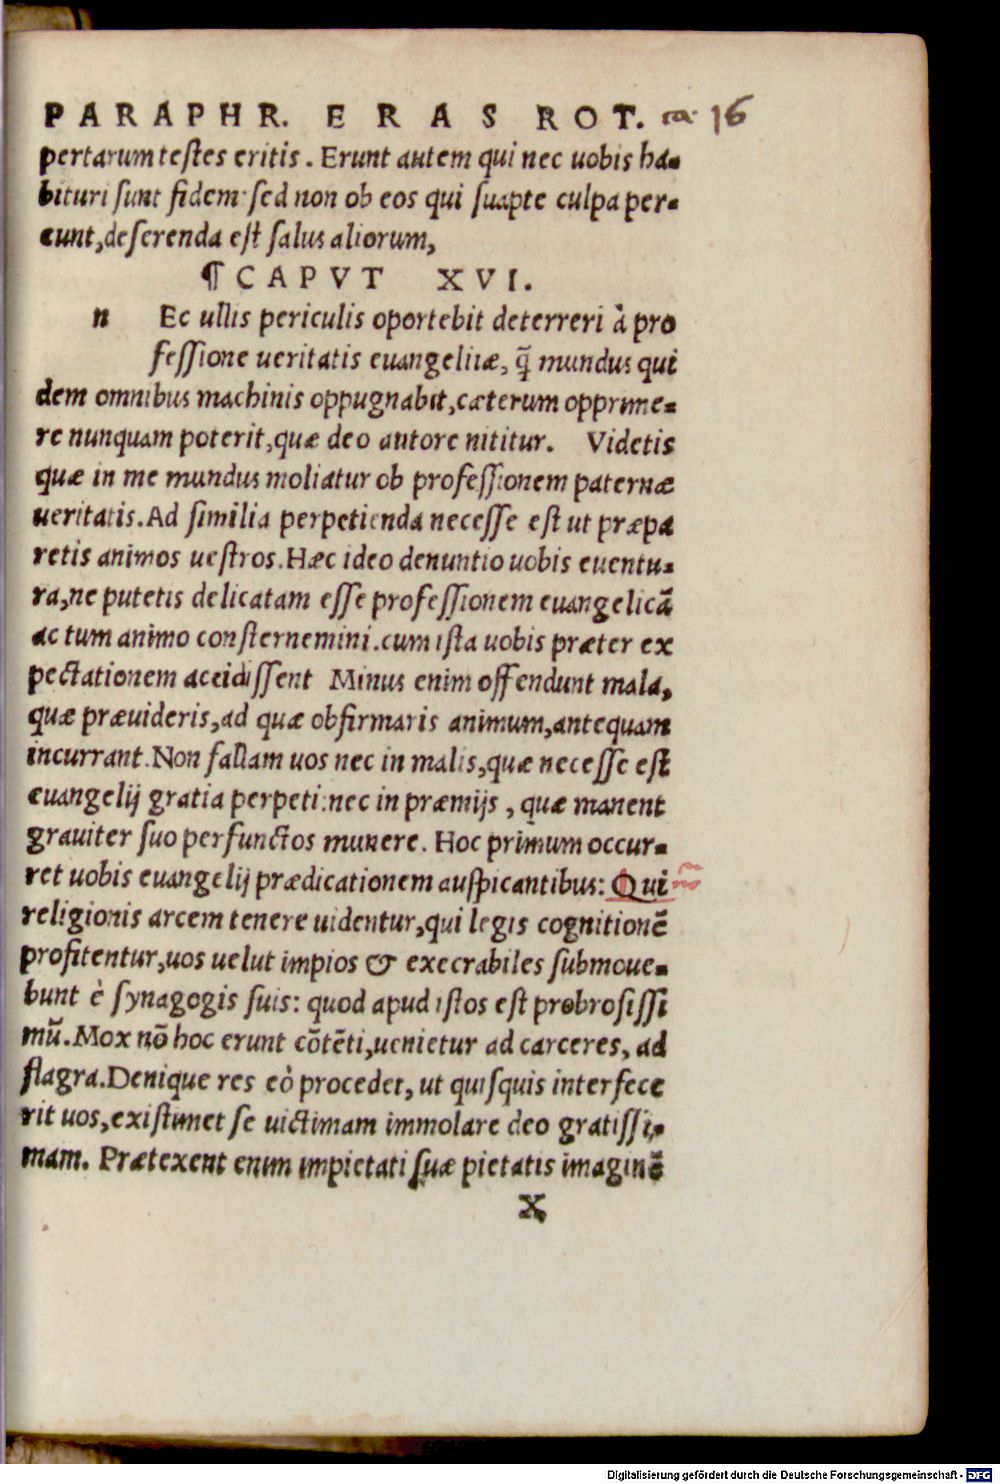 PARAPHR. ERAS ROT. ca. 16
pertarum testes eritis. Erunt autem qui nec uobis ha-
bituri sunt fidem· sed non ob eos qui suapte culpa per-
eunt, deserenda est salus aliorum,
¶ CAPVT XVI.
n Ec ullis periculis oportebit deterreri à pro
fessione ueritatis euangelicæ, q̃ mundus qui
dem omnibus machinis oppugnabit, cæterum opprime-
re nunquam poterit, quæ deo autore nititur. Videtis
quæ in me mundus moliatur ob professionem paternæ
ueritatis. Ad similia perpetienda necesse est ut præpa
retis animos uestros. Hæc ideo denuntio uobis euentu-
ra, ne putetis delicatam esse professionem euangelicã
ac tum animo consternemini. cum ista uobis præter ex
pectationem accidissent Minus enim offendunt mala,
quæ præuideris, ad quæ obfirmaris animum, antequam
incurrant. Non fallam uos nec in malis, quæ necesse est
euangelij gratia perpeti: nec in præmijs, quæ manent
grauiter suo perfunctos munere. Hoc primum occur-
ret uobis euangelij prædicationem auspicantibus: Qui
religionis arcem tenere uidentur, qui legis cognitionẽ
profitentur, uos uelut impios & execrabiles submoue-
bunt è synagogis suis: quod apud istos est probrosissi
mũ. Mox nõ hoc erunt cõtẽti, uenietur ad carceres, ad
flagra. Denique res eò procedet, ut quisquis interfece
rit uos, existimet se uictimam immolare deo gratissi-
mam. Prætexent enim impietati suæ pietatis imaginẽ
X
Digitalisierung gefördert durch die Deutsche Forschungsgemeinschaft - DFG